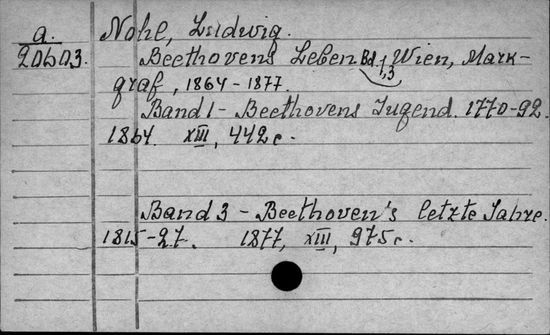 a.
20603.
Nohl, Ludwig.
Beethovens Leben Bd. 1,3 Wien, Mark-
graf, 1864-1877.
Band 1 - Beethovens Jugend. 1770-92.
1864. XIII, 442c.
Band 3 - Beethoven's letzte Jahre.
1815-27. 1877, XIII, 975c.